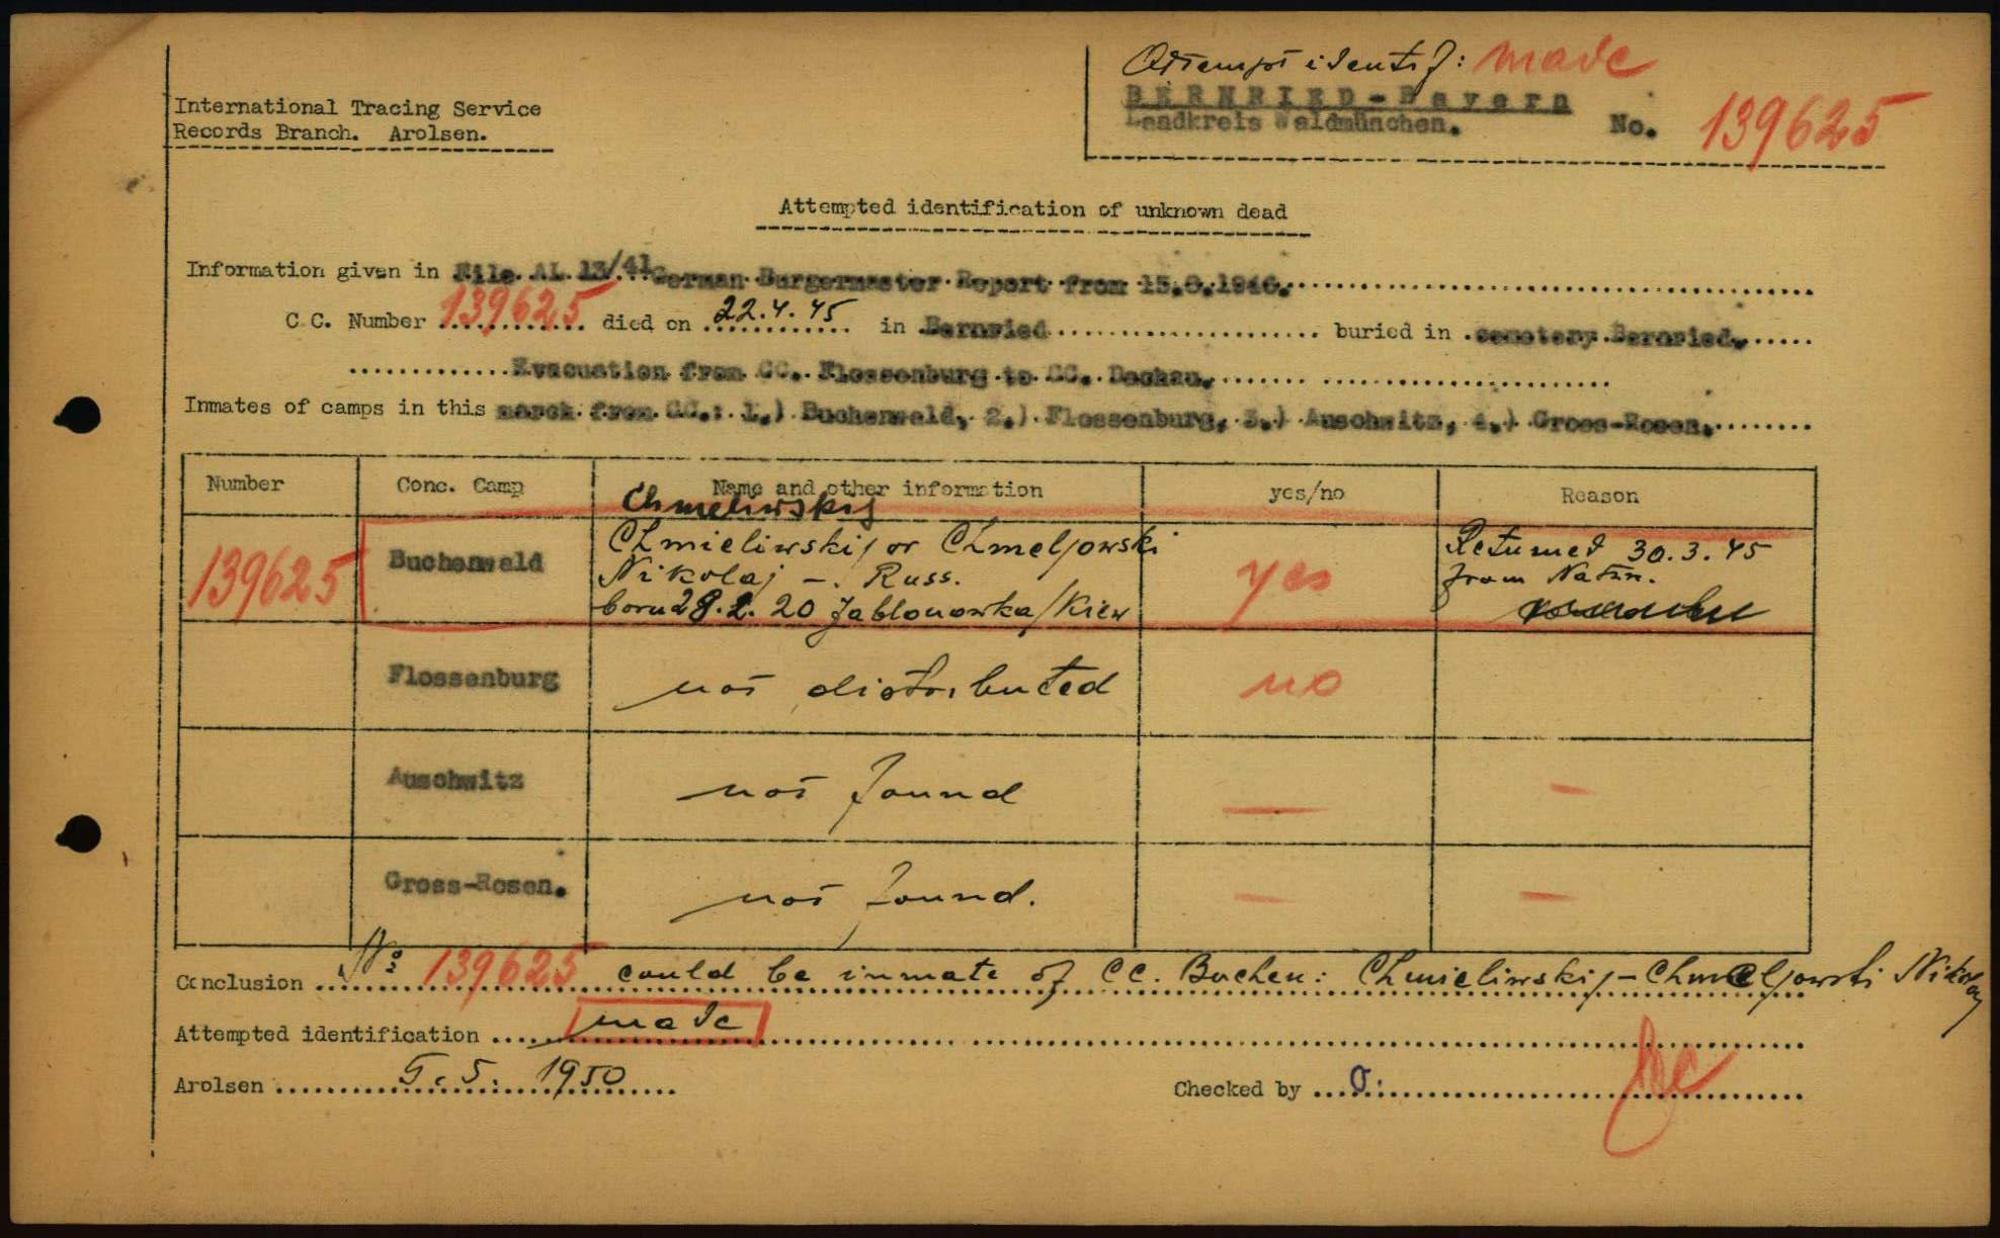 Attempt identif: made
International Tracing Service
Records Branch. Arolsen.
BERNRIED-Bayern
Landkreis Waldmünchen. No. 139625
Attempted identification of unknown dead
Information given in File AL 13/41 German Burgermaster Report from 15.8.1946.
C.C. Number 139625 died on 22.4.45 in Bernried buried in cemetery Bernried.
Evacuation from CC. Flossenburg to CC. Dachau.
Inmates of camps in this march from CC.: 1.) Buchenwald, 2.) Flossenburg, 3.) Auschwitz, 4.) Gross-Rosen.
Number Conc. Camp Name and other information yes/no Reason
Chmeliwskij
139625 Buchenwald Chmieliwskij or Chmeljowski yes Returned 30.3.45
Nikolaj -. Russ. from
born 28.2.20 Jablonowka/Kiew
Flossenburg not distributed no
Auschwitz not found — -
Gross-Rosen. not found. - -
Conclusion No: 139625 could be inmate of CC. Buchen: Chmieliwskij-Chmeljowski Nikolaj
Attempted identification made
Arolsen 5.5.1950 Checked by